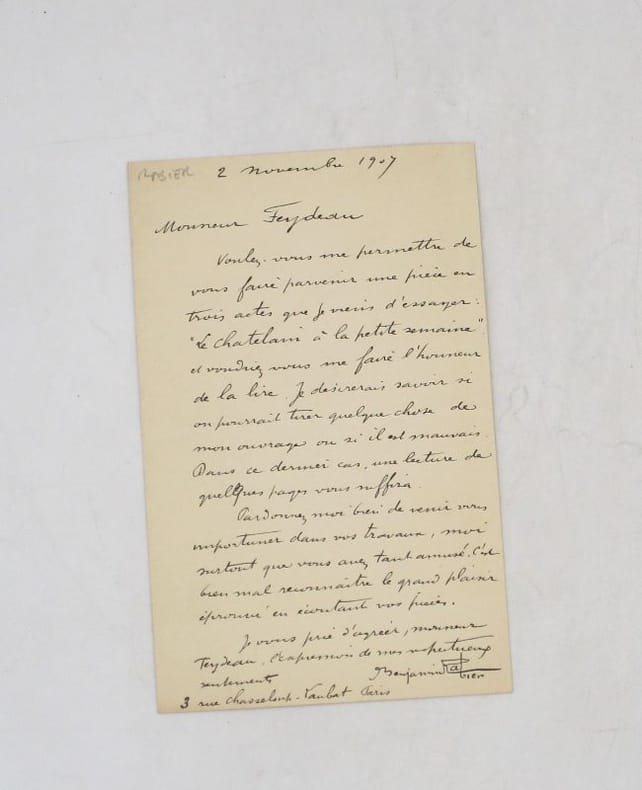 RABIER
2 novembre 1907
Monsieur Feydeau
Voulez-vous me permettre de
vous faire parvenir une pièce en
trois actes que je viens d'essayer :
"Le Chatelain à la petite semaine"
et voudriez vous me faire l'honneur
de la lire. Je désirerais savoir si
on pourrait tirer quelque chose de
mon ouvrage ou si il est mauvais.
Dans ce dernier cas, une lecture de
quelques pages vous suffira.
Pardonnez moi bien de venir vous
importuner dans vos travaux, moi
surtout que vous avez tant amusé. C'est
bien mal reconnaître le grand plaisir
éprouvé en écoutant vos pièces.
Je vous prie d'agréer, monsieur
Feydeau, l'expression de mes respectueux
sentiments
Benjamin Rabier
3 rue Chasseloup-Laubat Paris